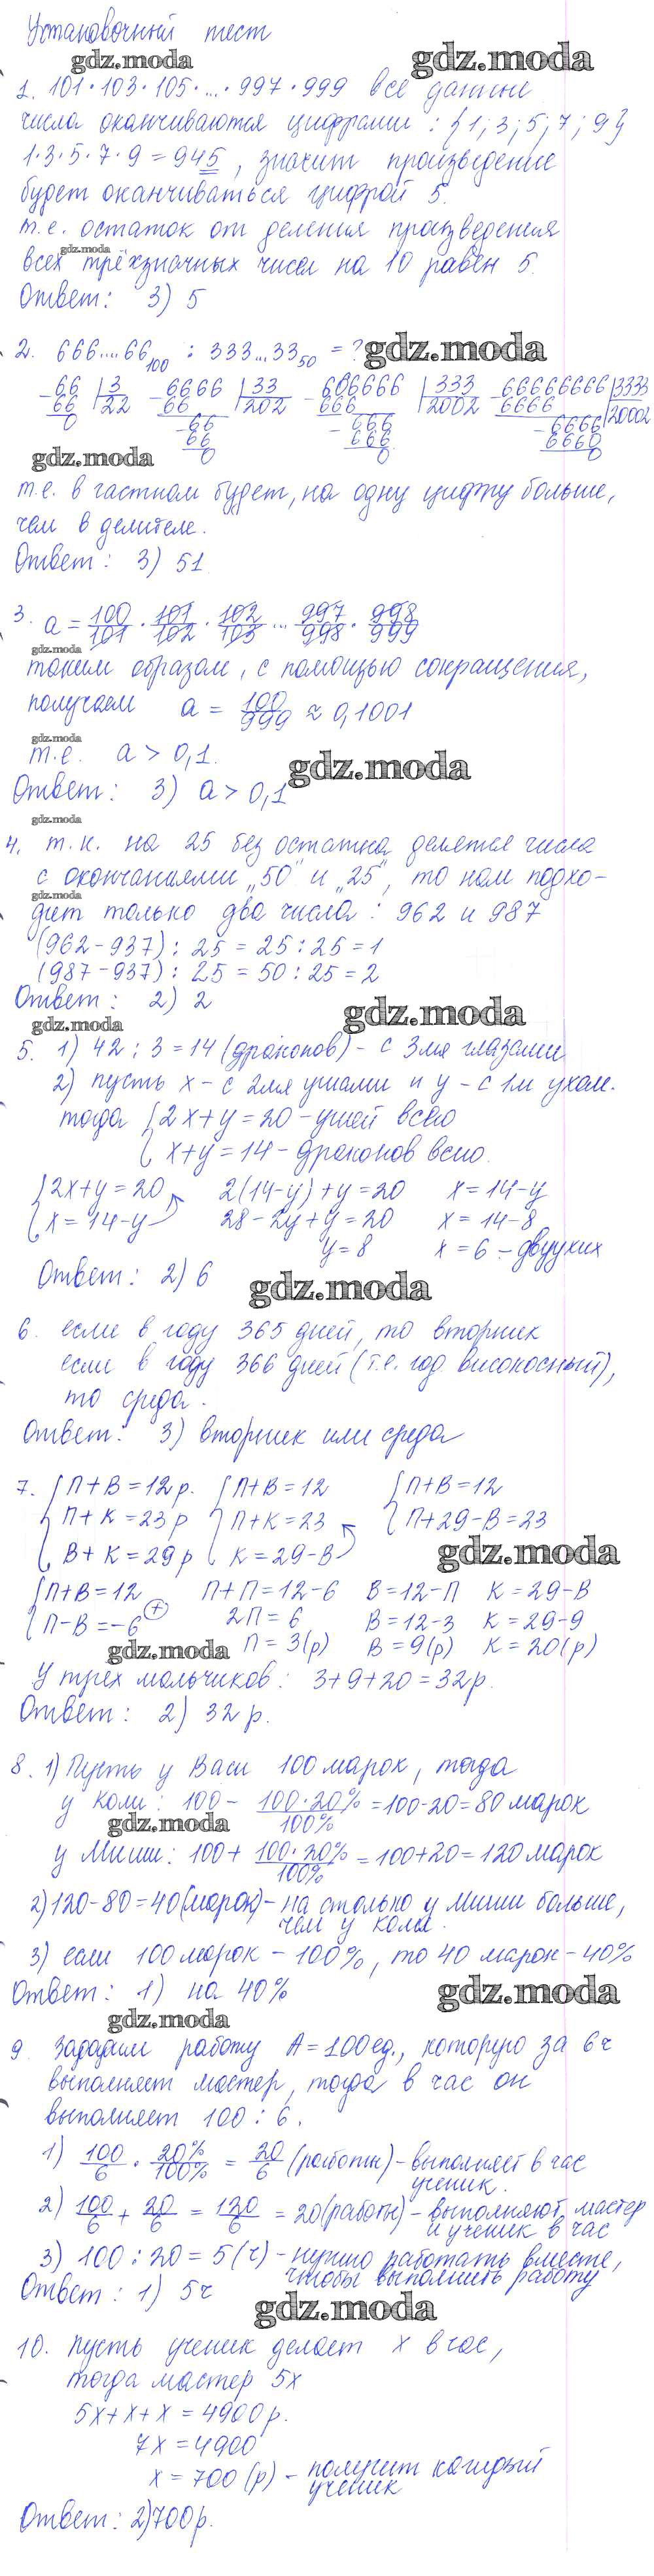 Установочный тест
gdz.moda gdz.moda
1. 101·103·105·...·997·999 все данные
числа оканчиваются цифрами: {1; 3; 5; 7; 9}
1·3·5·7·9=945, значит произведение
будет оканчиваться цифрой 5.
т.е. остаток от деления произведения
gdz.moda
всех трёхзначных чисел на 10 равен 5.
Ответ: 3) 5
2. 666....66₁₀₀ : 333...33₅₀ = ? gdz.moda
66 |3 6666 |33 666666 |333 66666666 |3333
66 22 66 202 666 2002 6666 20002
0 66 666 6666
66 666 6660
0 0 0
gdz.moda
т.е. в частном будет, на одну цифру больше,
чем в делителе.
Ответ: 3) 51
3. a = 100/101 · 101/102 · 102/103 ... 997/998 · 998/999
gdz.moda
таким образом, с помощью сокращения,
получаем a = 100/999 ≈ 0,1001
gdz.moda
т.е. a > 0,1.
gdz.moda
Ответ: 3) a > 0,1
gdz.moda
4. т.к. на 25 без остатка делятся числа
с окончаниями „50" и „25", то нам подхо-
gdz.moda
дит только два числа: 962 и 987
(962-937) : 25 = 25 : 25 = 1
(987-937) : 25 = 50 : 25 = 2
Ответ: 2) 2
gdz.moda gdz.moda
5. 1) 42 : 3 = 14 (драконов) - с 3мя глазами
2) пусть x - с 2мя ушами и y - с 1м ухом.
тогда {2x+y=20 - ушей всего
{x+y=14 - драконов всего.
{2x+y=20 2(14-y)+y=20 x=14-y
{x=14-y 28-2y+y=20 x=14-8
y=8 x=6 - двуухих
Ответ: 2) 6
gdz.moda
6. если в году 365 дней, то вторник
если в году 366 дней (т.е. год високосный),
то среда.
Ответ: 3) вторник или среда
7. {П+В=12р. {П+В=12 {П+В=12
{П+К=23р {П+К=23 {П+29-В=23
{В+К=29р {К=29-В
gdz.moda
{П+В=12 П+П=12-6 В=12-П К=29-В
{П-В=-6 (+) 2П=6 В=12-3 К=29-9
gdz.moda П=3(р) В=9(р) К=20(р)
У трех мальчиков: 3+9+20=32р.
Ответ: 2) 32р.
8. 1) Пусть у Васи 100 марок, тогда
у Коли: 100 - 100·20%/100% = 100-20=80 марок
gdz.moda
у Миши: 100 + 100·20%/100% = 100+20=120 марок
2) 120-80=40(марок) - на столько у Миши больше,
чем у Коли.
3) если 100 марок - 100%, то 40 марок - 40%
Ответ: 1) на 40%
gdz.moda gdz.moda
9. Зададим работу A=100ед., которую за 6ч
выполняет мастер, тогда в час он
выполняет 100 : 6.
1) 100/6 · 20%/100% = 20/6 (работы) - выполняет в час
ученик.
2) 100/6 + 20/6 = 120/6 = 20(работы) - выполняют мастер
и ученик в час
3) 100 : 20 = 5(ч) - нужно работать вместе,
чтобы выполнить работу
Ответ: 1) 5ч
gdz.moda
10. Пусть ученик делает x в час,
тогда мастер 5x
5x+x+x=4900р.
7x=4900
x=700(р) - получит каждый
ученик
Ответ: 2) 700р.